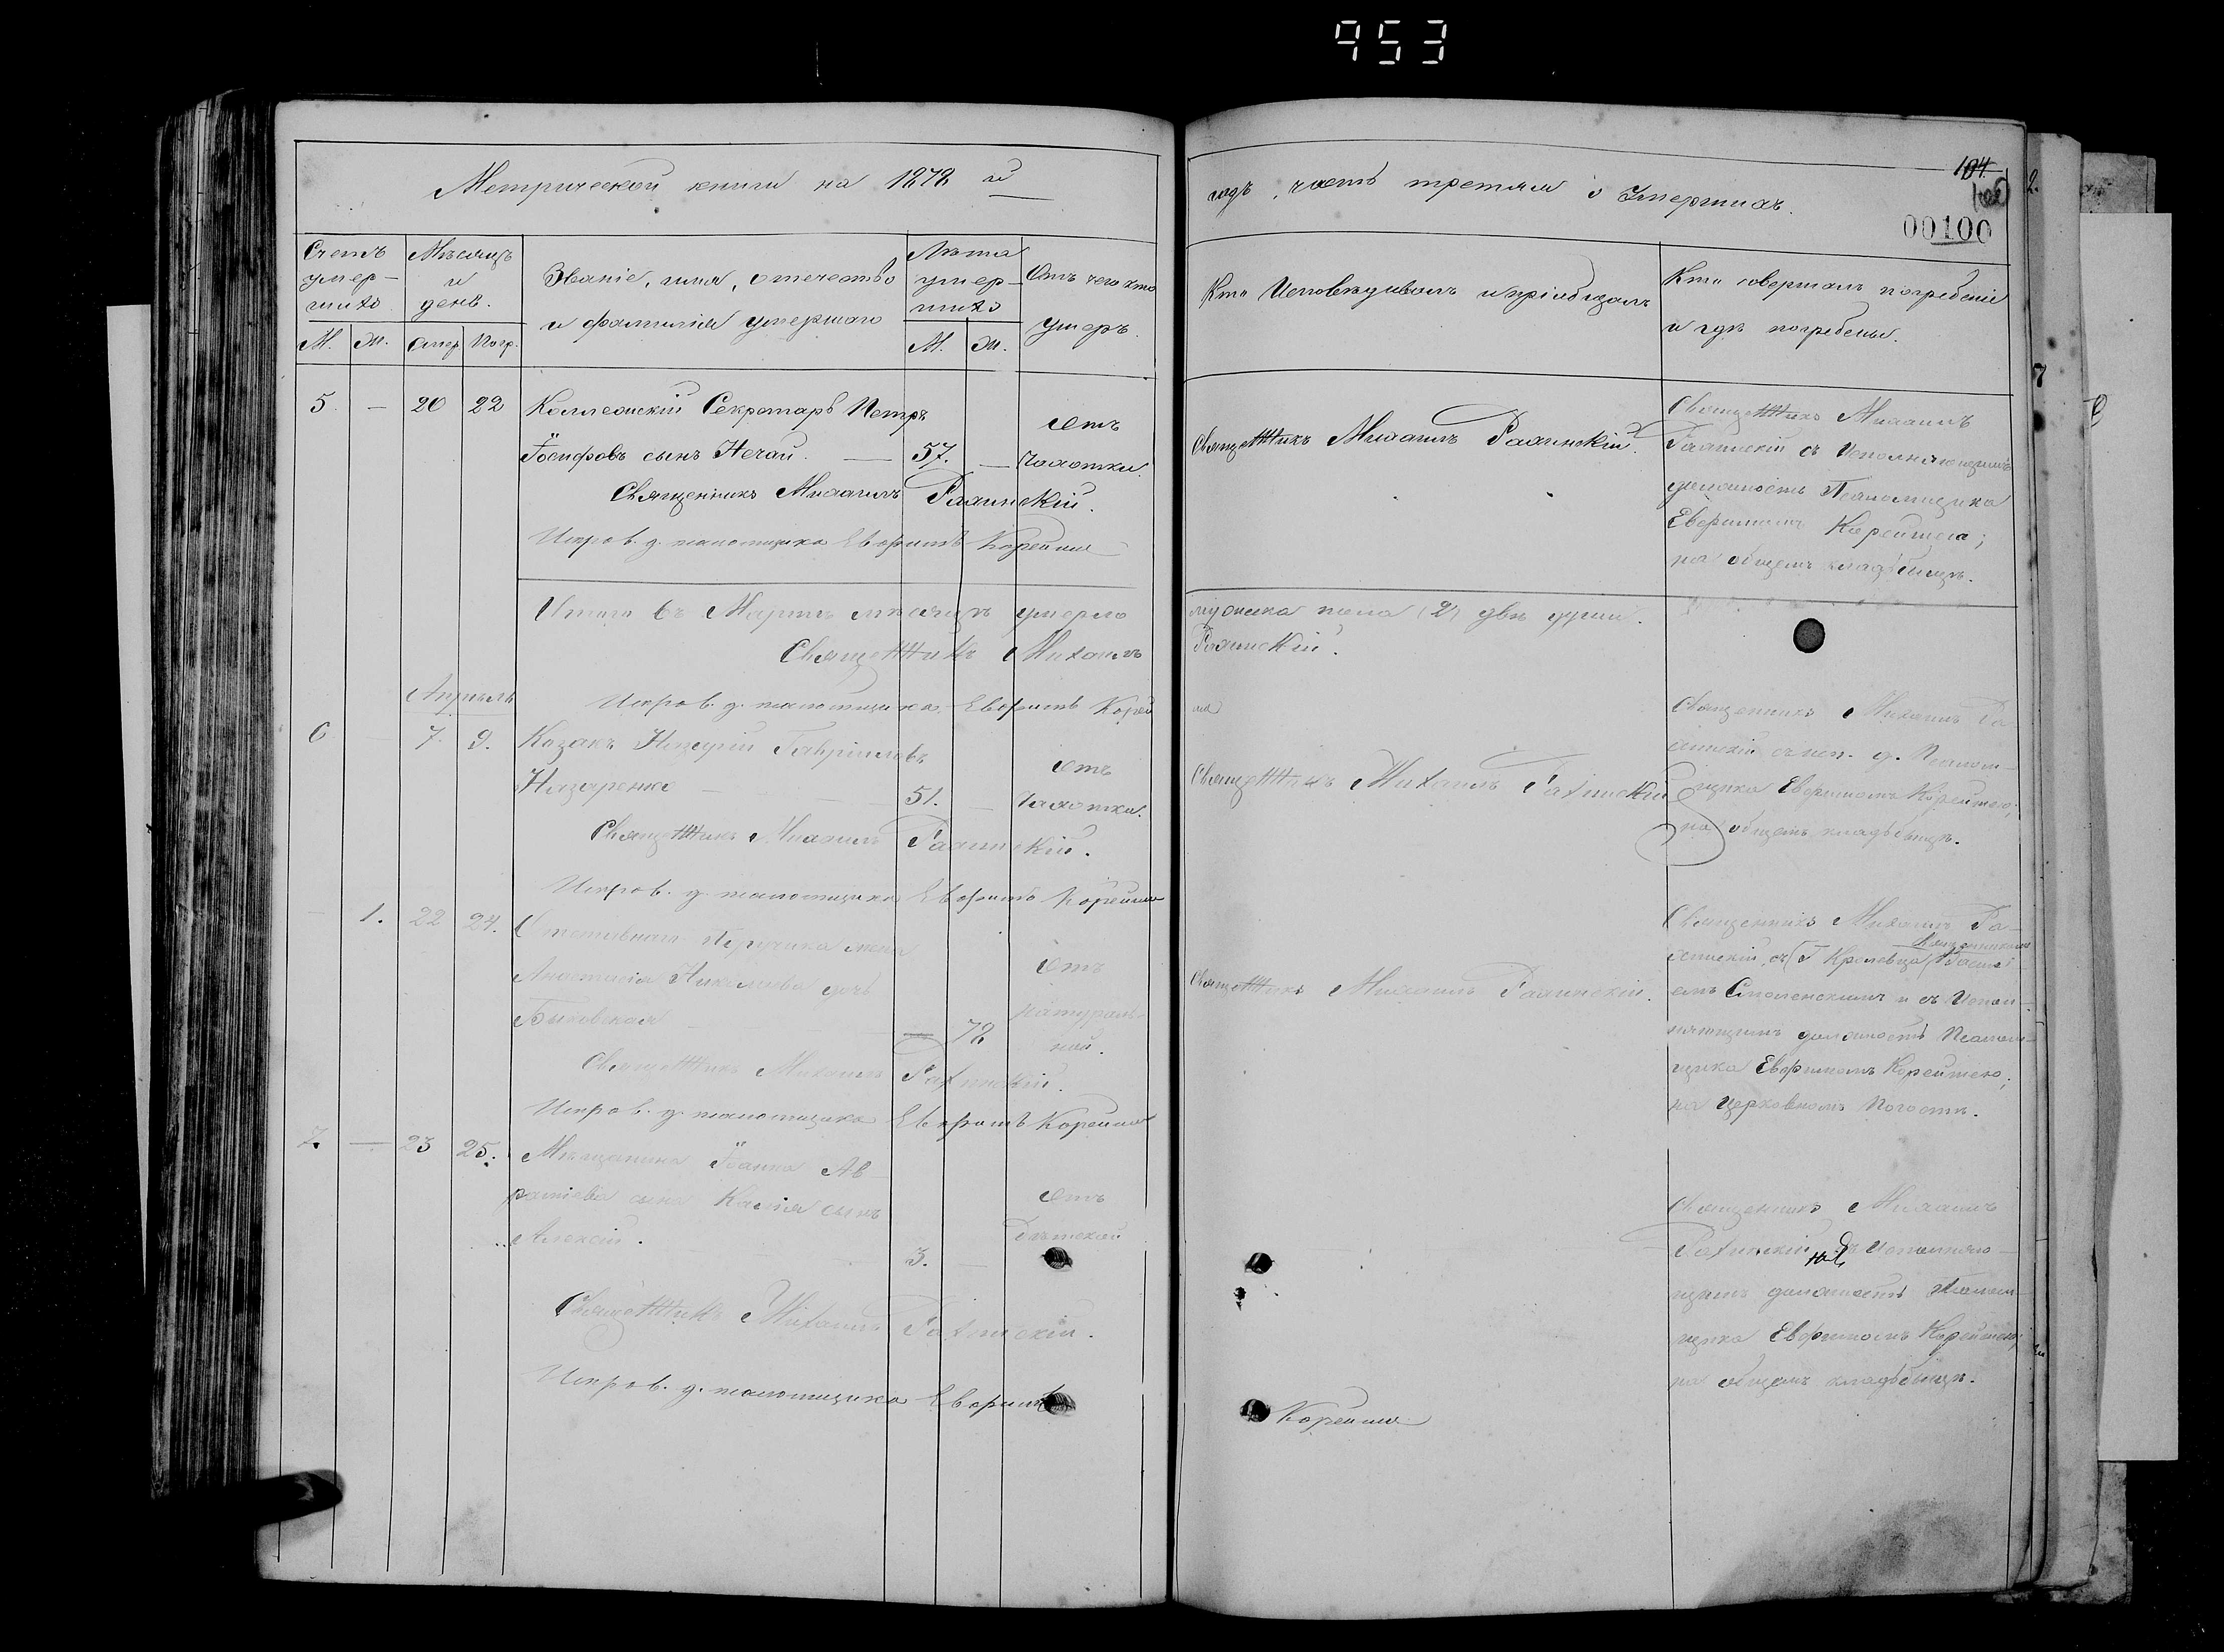 953
Метрической книги на 1872 й
годъ, часть третья о Умершихъ.
104
100
00100
Счетъ умер-шихъ
Мѣсяцъ и день.
Званіе, имя, отечество
и фамилія умершаго
Лѣта умер-шихъ
Отъ чего кто
умеръ.
Кто Исповѣдывалъ и пріобщалъ
Кто совершалъ погребеніе
и гдѣ погребены.
М. Ж. Смер Погр. М. Ж.
5. — 20 22 Коллежскій Секретарь Петръ
Іосифовъ сынъ Нечай. — 57. — отъ чахотки.
Священникъ Михаилъ Рахинскій.
Испр. д. псаломщика Евфимъ Корейша
Священникъ Михаилъ Рахинскій.
Священникъ Михаилъ
Рахинскій съ Исполняющимъ
должность Псаломщика
Евфимомъ Корейшею;
на общемъ кладбищѣ.
Итого въ Мартѣ мѣсяцѣ умерло
мужеска пола (2) двѣ души.
Священникъ Михаилъ
Рахинскій.
Испр. д. псаломщика Евфимъ Корей
ша
Апрѣль
6 — 7. 9. Козакъ Гавріиловъ
Назаренко — 51. — отъ Чахотки.
Священникъ Михаилъ Рахинскій.
Испр. д. псаломщика Евфимъ Корейша
Священникъ Михаилъ Рахинскій
Священникъ Михаилъ Ра-
хинскій съ исп. д. Псалом-
щика Евфимомъ Корейшею;
на общемъ кладбищѣ.
— 1. 22 24. Отставнаго Поручика жена
Анастасія Николаева дочь
Быковская — 72 отъ натураль-
ной.
Священникъ Михаилъ Рахинскій.
Испр. д. псаломщика Евфимъ Корейша
Священникъ Михаилъ Рахинскій.
Священникъ Михаилъ Ра-
хинскій, съ Г. Кролевца
Смоленскимъ и съ Испол-
няющимъ должность Псалом-
щика Евфимомъ Корейшею;
на Церковномъ Погостѣ.
7. — 23 25. Мѣщанина Іоанна
сына сынъ
Алексій. — 3. — отъ
Дѣтской
Священникъ Михаилъ Рахинскій.
Испр. д. псаломщика Евфимъ
Корейша
Священникъ Михаилъ
Рахинскій съ Исполняю-
щимъ должность Псалом-
щика Евфимомъ Корейшею;
на общемъ кладбищѣ.